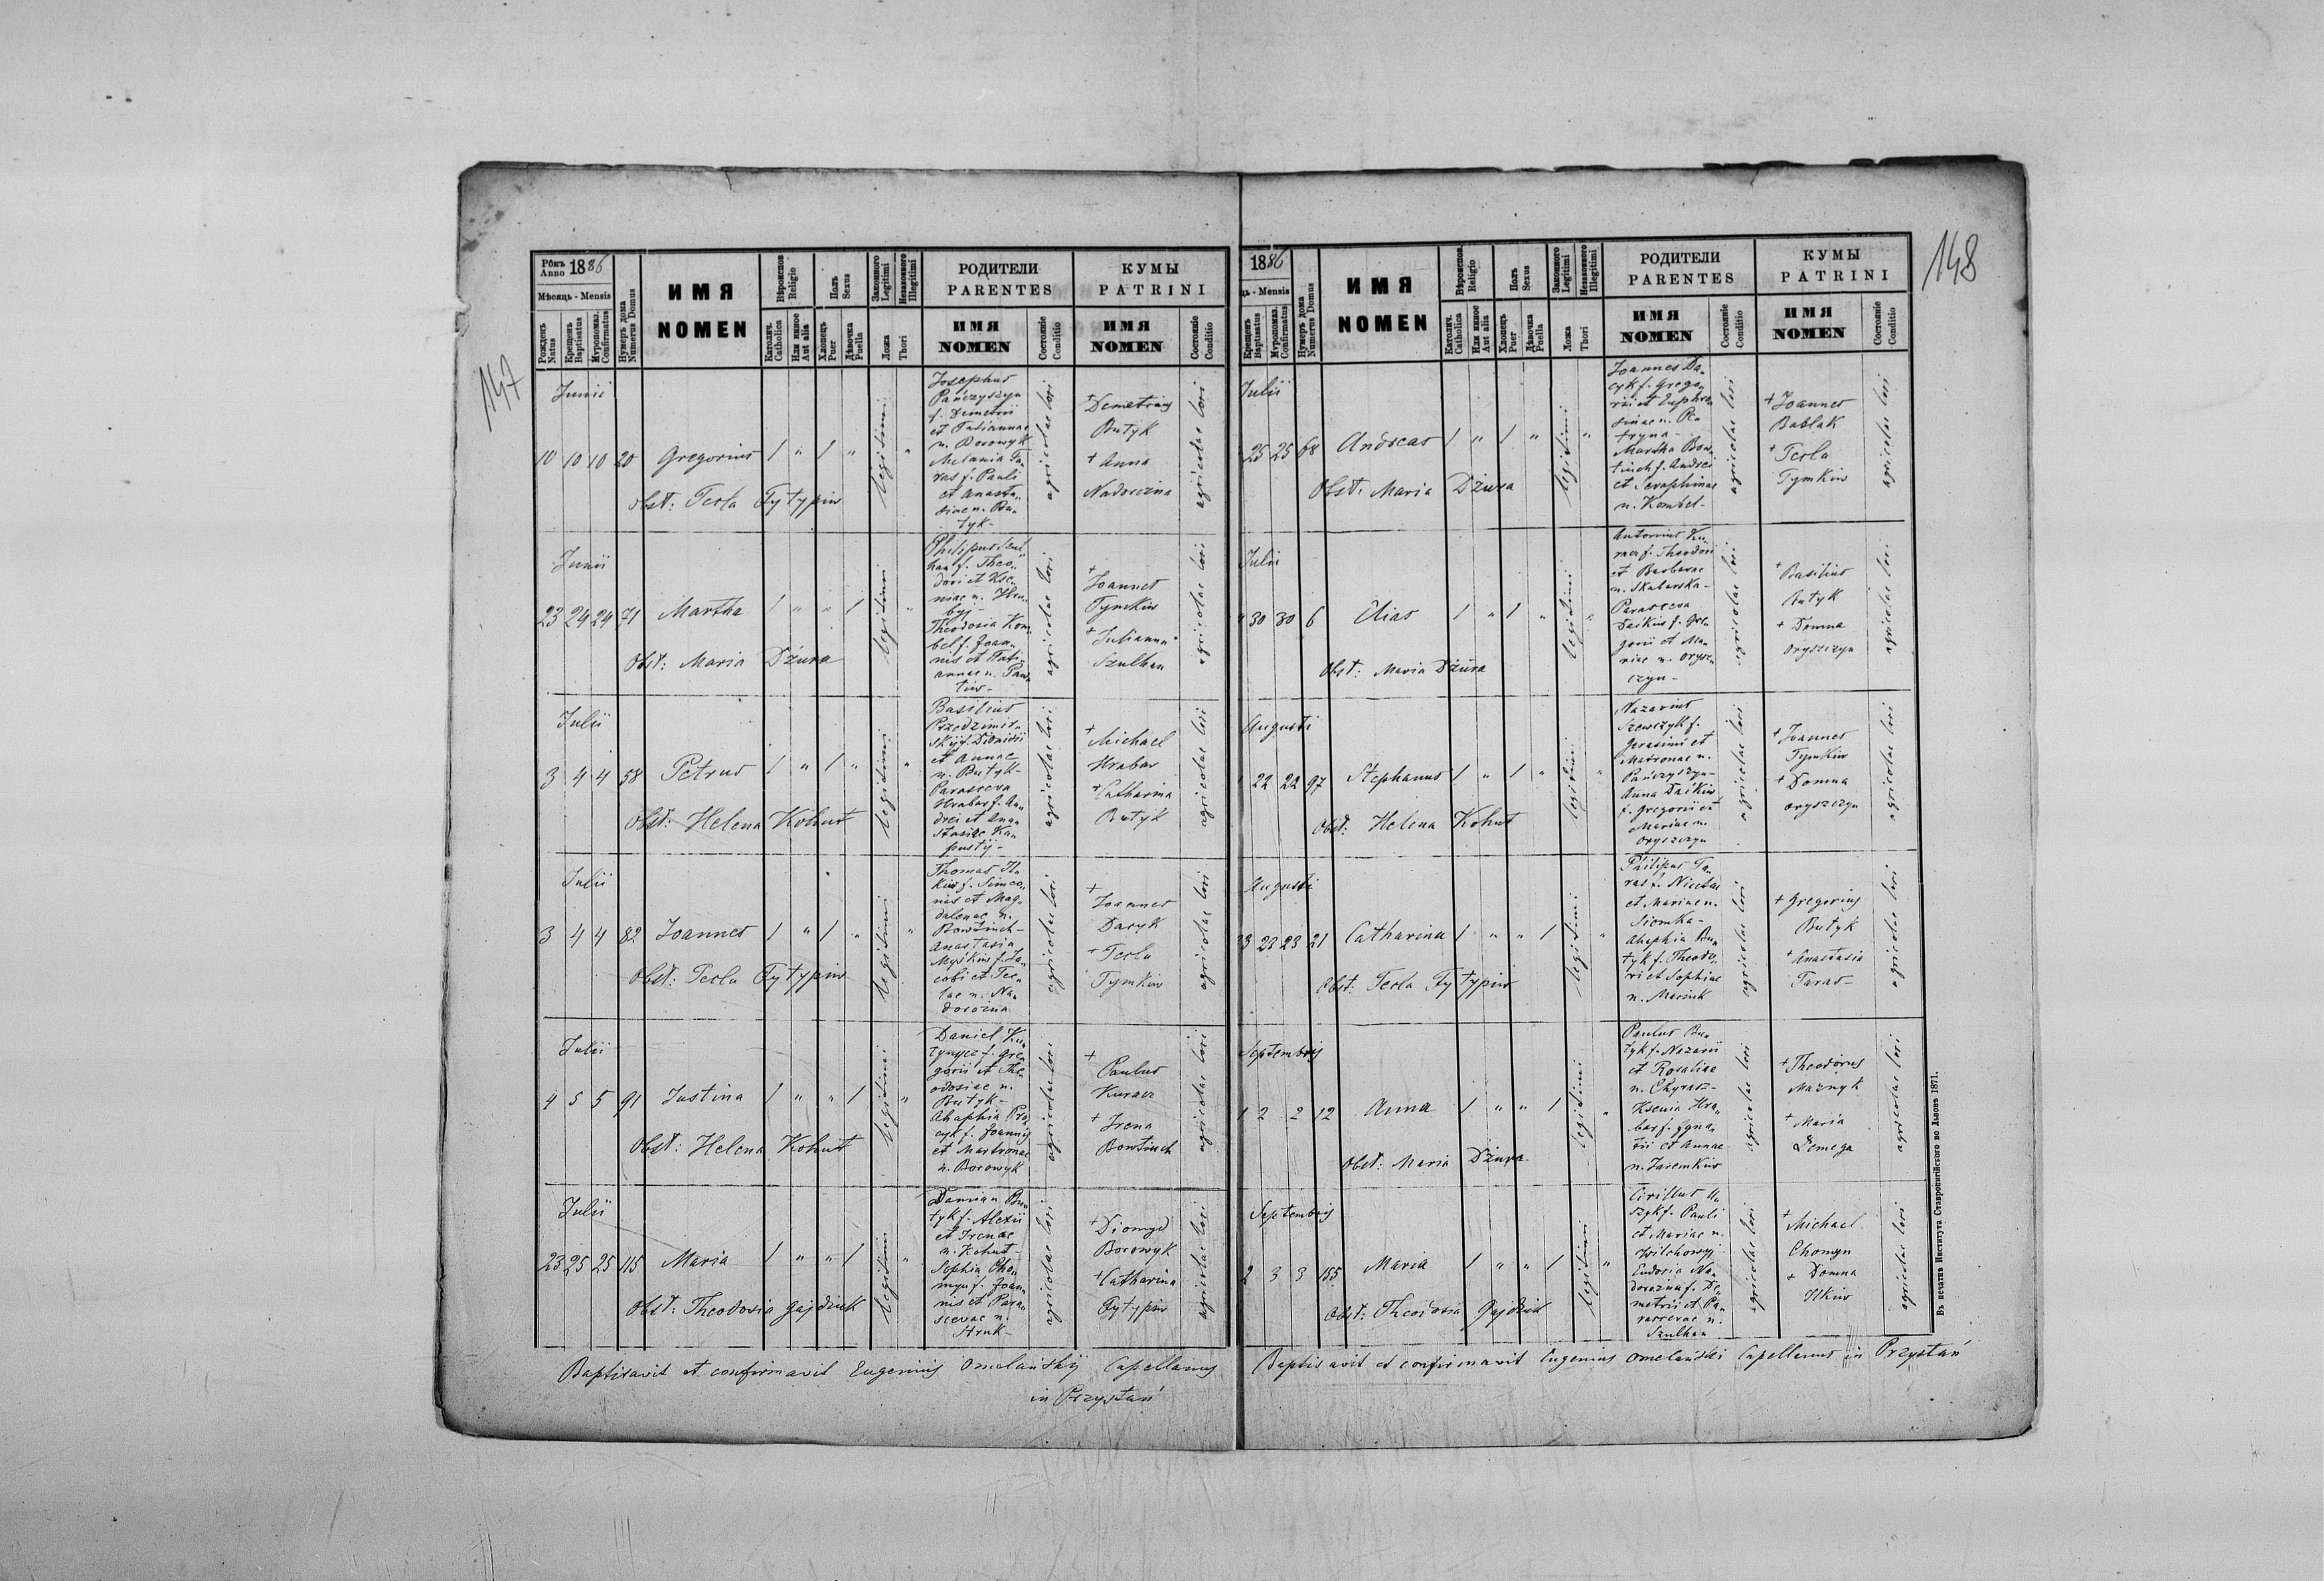 147
Рôкъ Anno 1886
Мѣсяць - Mensis
Рожденъ Natus
Крещенъ Baptisatus
Мѵропомаз. Confirmatus
Нумеръ дома Numerus Domus
ИМЯ
NOMEN
Вѣроисповѣд. Religio
Католич. Catholica
Или инное Aut alia
Полъ Sexus
Хлопецъ Puer
Дѣвочка Puella
Законного Legitimi
Незаконного Illegitimi
Ложа Thori
РОДИТЕЛИ
PARENTES
ИМЯ
NOMEN
Состояніе Conditio
КУМЫ
PATRINI
ИМЯ
NOMEN
Состояніе Conditio
Junii
10 10 10 20 Gregorius 1 " 1 " legitimi "
obst: Tecla Fytypiw
Josephus
Pańczyszyn
f. Demetrii
et Tatiannae
n. Borowyk
Melania Ta„
ras f. Pauli
et Anasta„
siae n. Bu„
tyk-
agricolae loci
+ Demetrius
Butyk
+ Anna
Nadorozna
agricolae loci
Junii
23 24 24 71 Martha 1 " " 1 legitimi "
Obst: Maria Dżura
Philipus Szul„
han f. Theo„
dori et Kse„
niae n. Hru„
byj-
Theodosia Kom„
bel f. Joan„
nis et Tati„
annae n. Paw„
tiw-
agricolae loci
+ Joannes
Tymkiw
+ Julianna
Szulhan
agricolae loci
Julii
3 4 4 58 Petrus 1 " 1 " legitimi "
Obst: Helena Kohut
Basilius
Przedzimir„
skij f. Dionisii
et Annae
n. Butyk-
Parasceva
Hrabar f. An„
drei et Ana„
stasiae Ka„
pustij-
agricolae loci
+ Michael
Hrabar
+ Catharina
Butyk
agricolae loci
Julii
3 4 4 82 Joannes 1 " 1 " legitimi "
Obst: Tecla Fytypiw
Thomas Il„
kiw f. Simeo„
nis et Mag„
dalenae n.
Bowtinch-
Anastasia
Myskiw f. Ja„
cobi et Tec„
lae n. Na„
dorozna
agricolae loci
+ Joannes
Dacyk
+ Tecla
Tymkiw
agricolae loci
Julii
4 5 5 91 Justina 1 " " 1 legitimi "
Obst: Helena Kohut
Daniel Ku„
f. Gre„
gorii et The„
odosiae n.
Butyk-
Ahaphia Pro„
cyk f. Joannis
et Martronae
n. Borowyk
agricolae loci
+ Paulus
Kuracz
+ Irena
Bowtinch
agricolae loci
Julii
23 25 25 115 Maria 1 " " 1 legitimi "
Obst: Theodosia Gajdiuk
Damian Bu„
tyk f. Alexii
et Irenae
n. Kohut-
Sophia Cho„
myn f. Joan„
nis et Para„
scevae n.
Hruk-
agricolae loci
+ Dionyd
Borowyk
+ Catharina
Fytypiw
agricolae loci
Baptisavit et confirmavit Eugenius Omelańskij Capellanus
in Przystań
148
1886
ць - Mensis
Крещенъ Baptisatus
Мѵропомаз. Confirmatus
Нумеръ дома Numerus Domus
ИМЯ
NOMEN
Вѣроисповѣд. Religio
Католич. Catholica
Или инное Aut alia
Полъ Sexus
Хлопецъ Puer
Дѣвочка Puella
Законного Legitimi
Незаконного Illegitimi
Ложа Thori
РОДИТЕЛИ
PARENTES
ИМЯ
NOMEN
Состояніе Conditio
КУМЫ
PATRINI
ИМЯ
NOMEN
Состояніе Conditio
Julii
25 25 68 Andreas 1 " 1 " legitimi "
Obst: Maria Dżura
Joannes Da„
cyk f. Grego„
rii et Euphro„
sinae n. Pe„
tryna-
Martha Bow„
tinch f. Andrei
et Seraphinae
n. Kombel-
agricolae loci
+ Joannes
Bablak
+ Tecla
Tymkiw
agricolae loci
Julii
30 30 6 Elias 1 " 1 " legitimi "
Obst: Maria Dżura
Antonius Ku„
racz f. Theodori
et Barbarae
n. Skabarska-
Parasceva
Daikiw f. Gre„
gorii et Ma„
riae n. Orysz„
czyn-
agricolae loci
+ Basilius
Butyk
+ Domna
Oryszczyn
agricolae loci
Augusti
22 22 97 Stephanus 1 " 1 " legitimi "
Obst: Helena Kohut
Nazarius
Szewczyk f.
Gerasimi et
Matronae n.
Pańczyszyn-
Anna Daikiw
f. Gregorii et
Mariae n.
Oryszczyn
agricolae loci
+ Joannes
Tymkiw
+ Domna
Oryszczyn
agricolae loci
Augusti
23 23 23 21 Catharina 1 " " 1 legitimi "
Obst: Tecla Fytypiw
Philipus Ta„
ras f. Nicetae
et Mariae n.
Siomka-
Ahaphia Bu„
tyk f. Theodo„
ri et Sophiae
n. Maziuk
agricolae loci
+ Gregorius
Butyk
+ Anastasia
Taras-
agricolae loci
Septembris
1 2 2 12 Anna 1 " " 1 legitimi "
Obst: Maria Dżura
Paulus Bu„
tyk f. Nazarii
et Rosaliae
n. Chyrasz-
Ksenia Hra„
bar f. Igna„
tii et Annae
n. Jaremkiw
agricolae loci
+ Theodorus
Maznyk
+ Maria
Demega
agricolae loci
Septembris
2 3 3 155 Maria 1 " " 1 legitimi "
Obst: Theodosia Gajdiuk
Cirillus U„
szyk f. Pauli
et Mariae n.
Wilchowyj-
Eudosia Na„
dorozna f. De„
metrii et Pa„
rascevae n.
Szulhan
agricolae loci
+ Michael
Chomyn
+ Domna
Ilkiw
agricolae loci
Baptisavit et confirmavit Eugenius Omelański Capellanus in Przystań
Въ печатнѣ Института Ставропигійского во Львовѣ 1871.